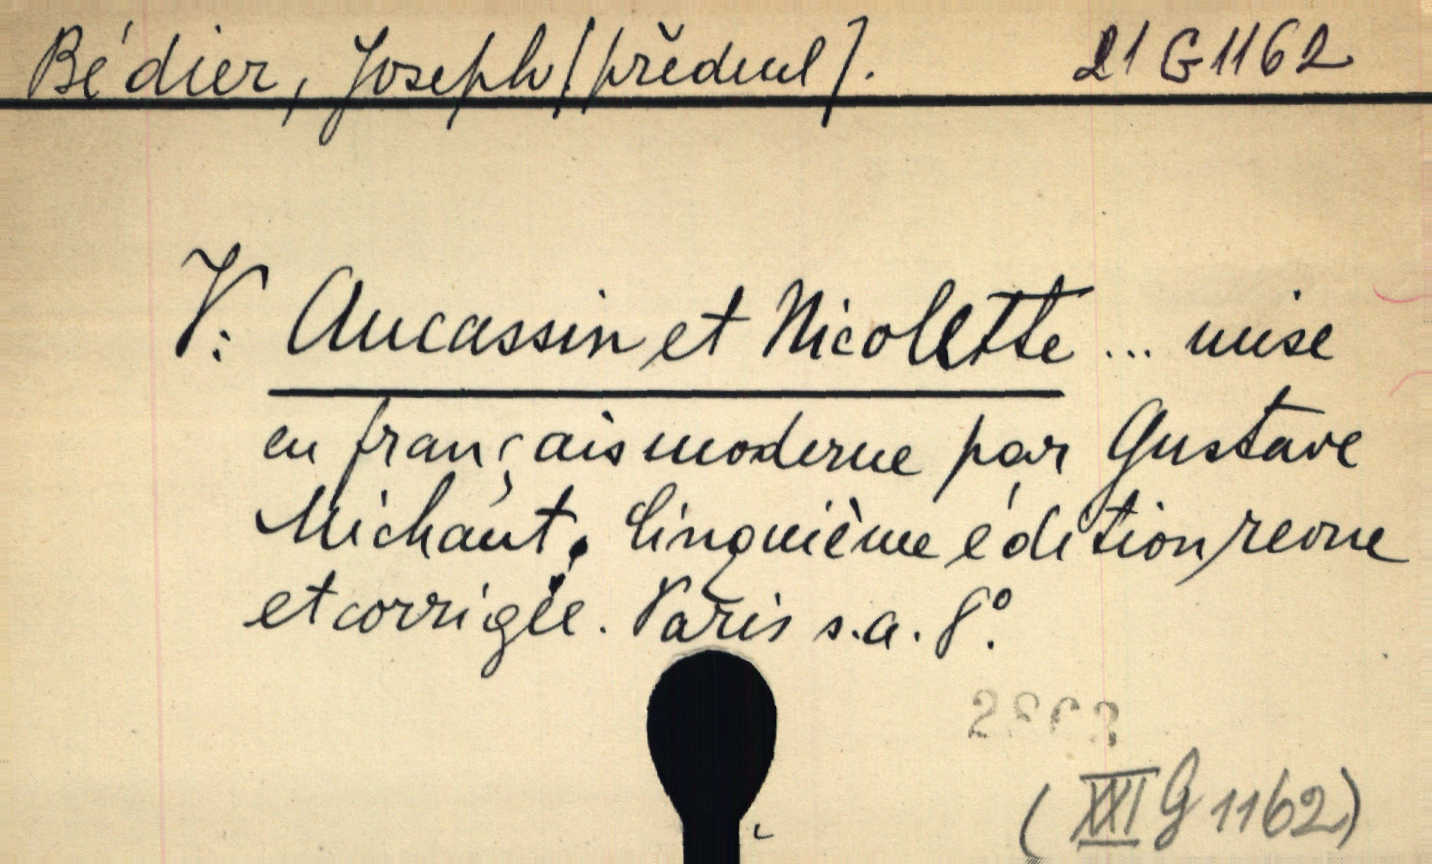 Bédier, Joseph [předml]. 21 G 1162
V: Aucassin et Nicolette ... mise
en français moderne par Gustave
Michaut. Cinquième édition revue
et corrigée. Paris s.a. 8°.
(XXI G 1162)